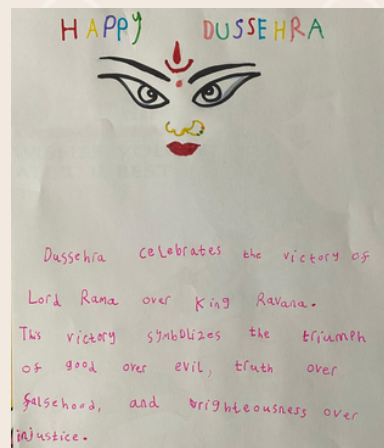 HAPPY DUSSEHRA
Dussehra celebrates the victory of
Lord Rama over King Ravana.
This victory symbolizes the triumph
of good over evil, truth over
falsehood, and righteousness over
injustice.